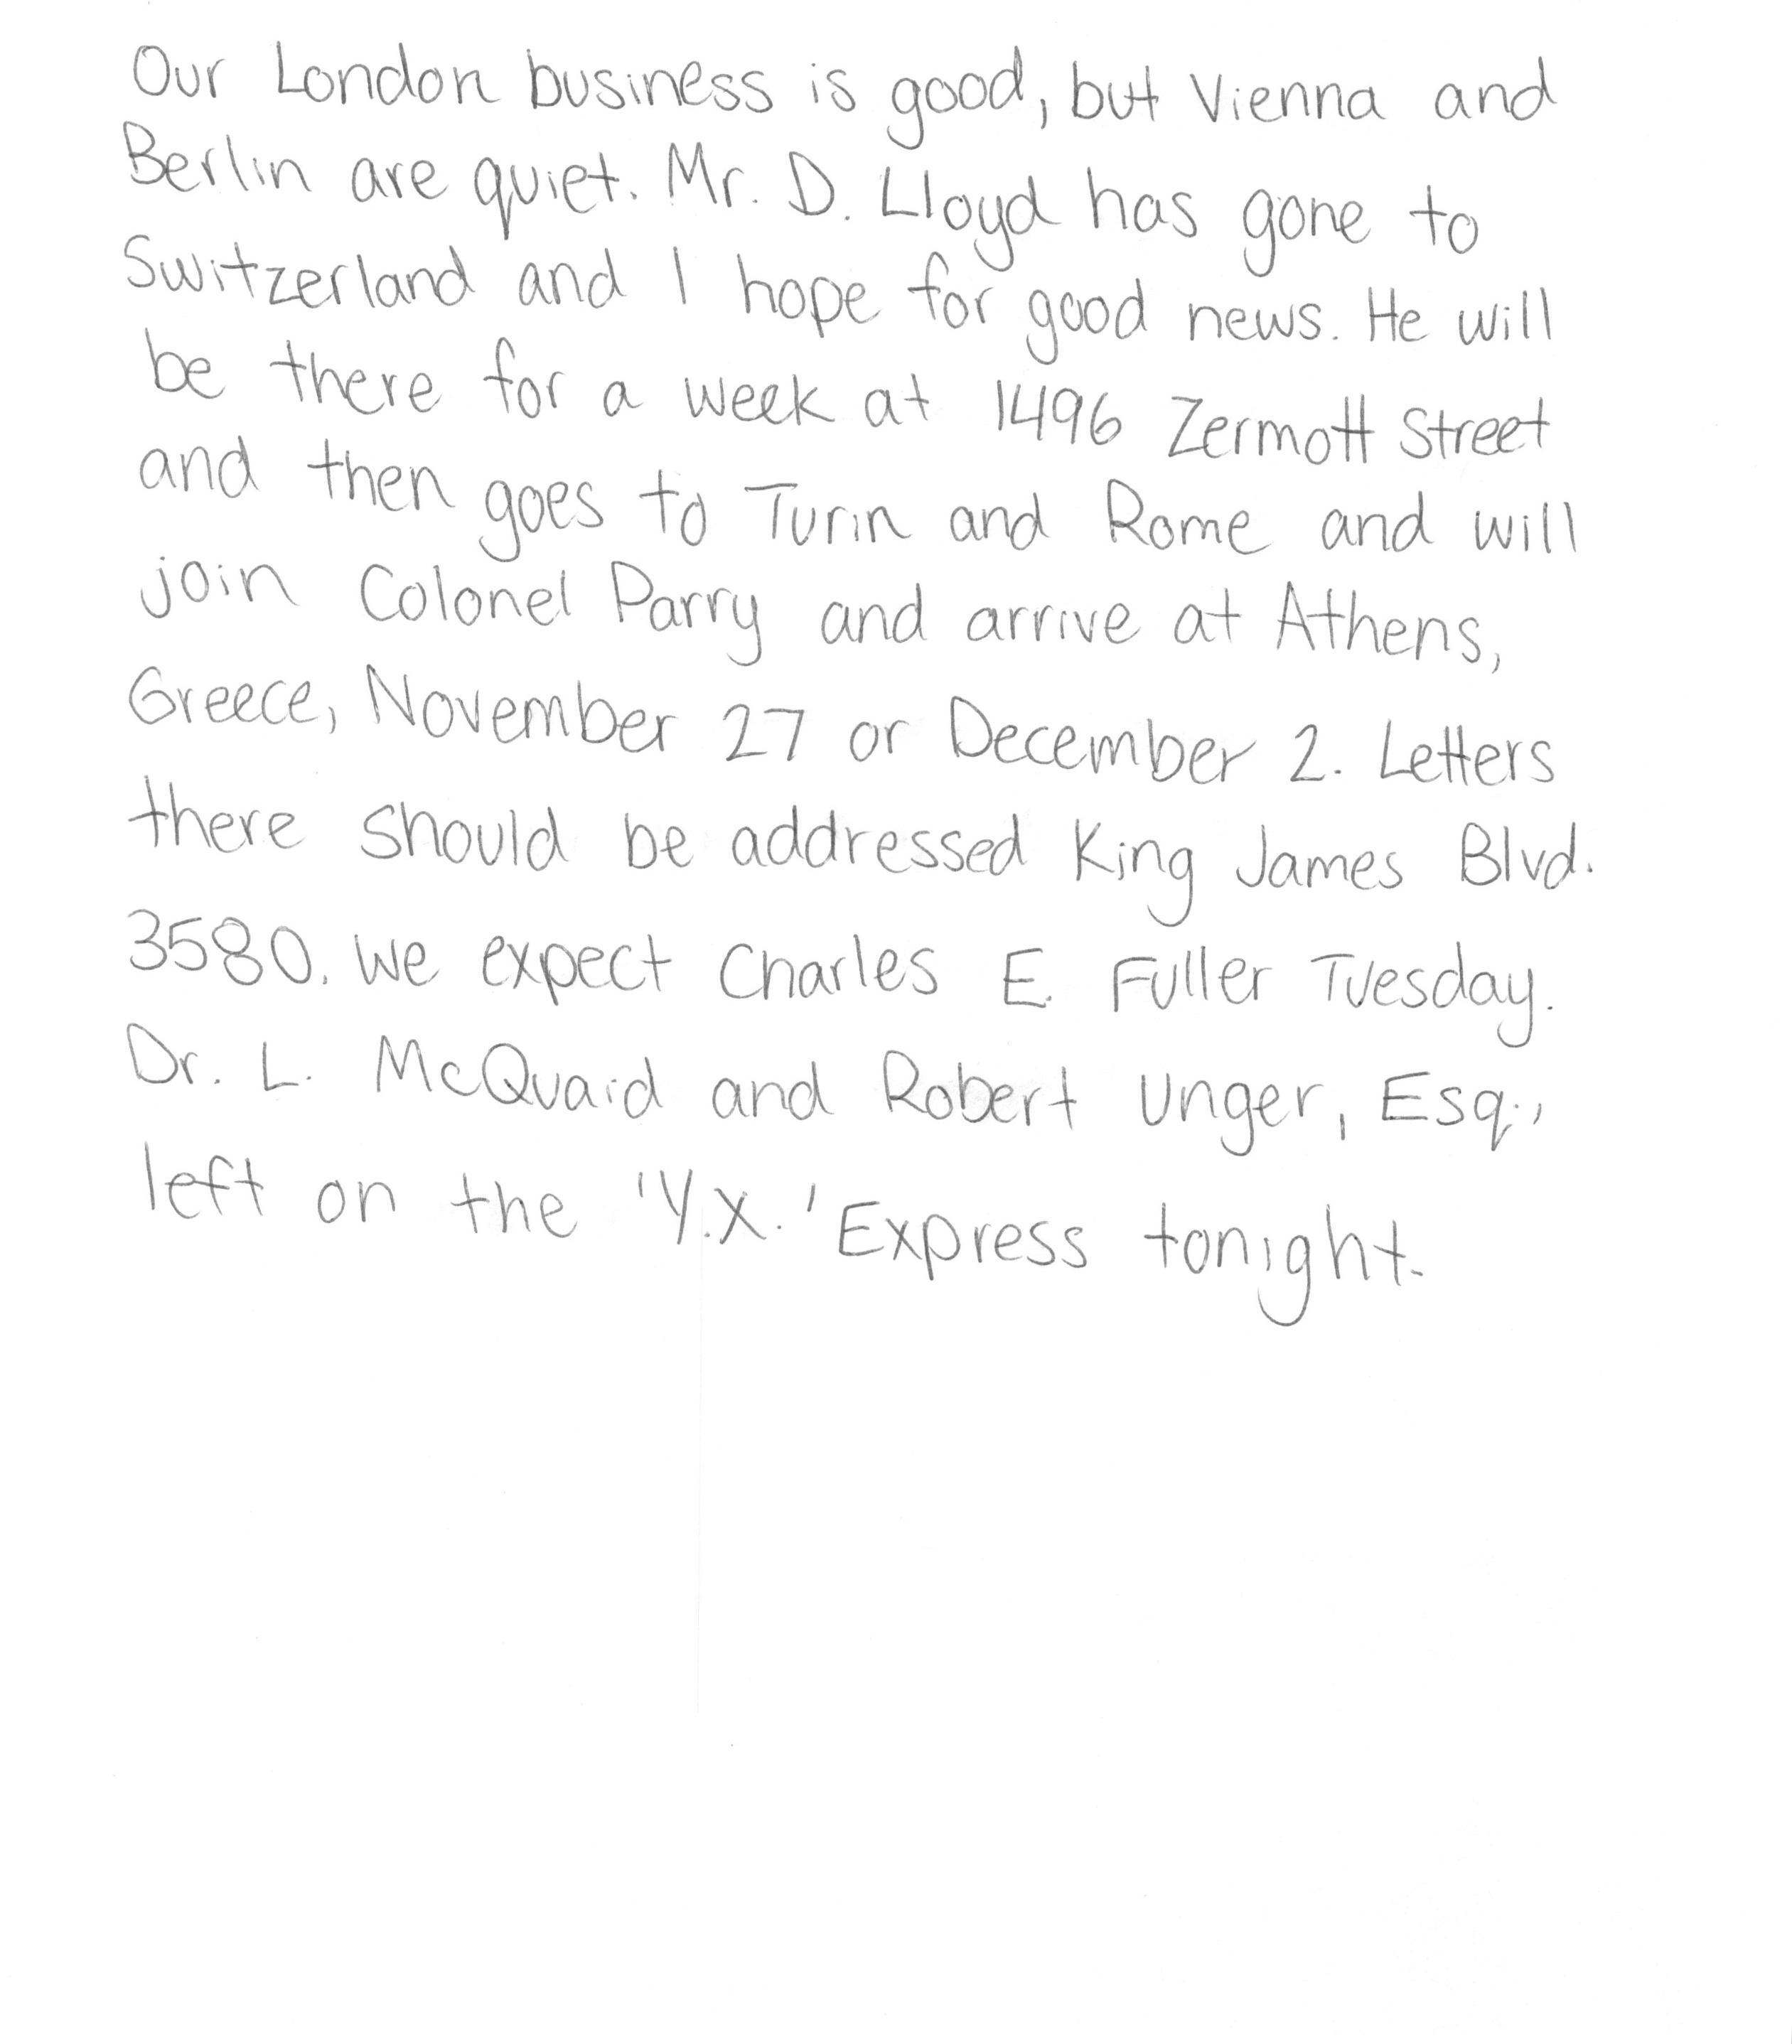 Our London business is good, but Vienna and
Berlin are quiet. Mr. D. Lloyd has gone to
Switzerland and I hope for good news. He will
be there for a week at 1496 Zermott Street
and then goes to Turin and Rome and will
join Colonel Parry and arrive at Athens,
Greece, November 27 or December 2. Letters
there should be addressed King James Blvd.
3580. We expect Charles E. Fuller Tuesday.
Dr. L. McQuaid and Robert Unger, Esq.,
left on the 'Y.X.' Express tonight.